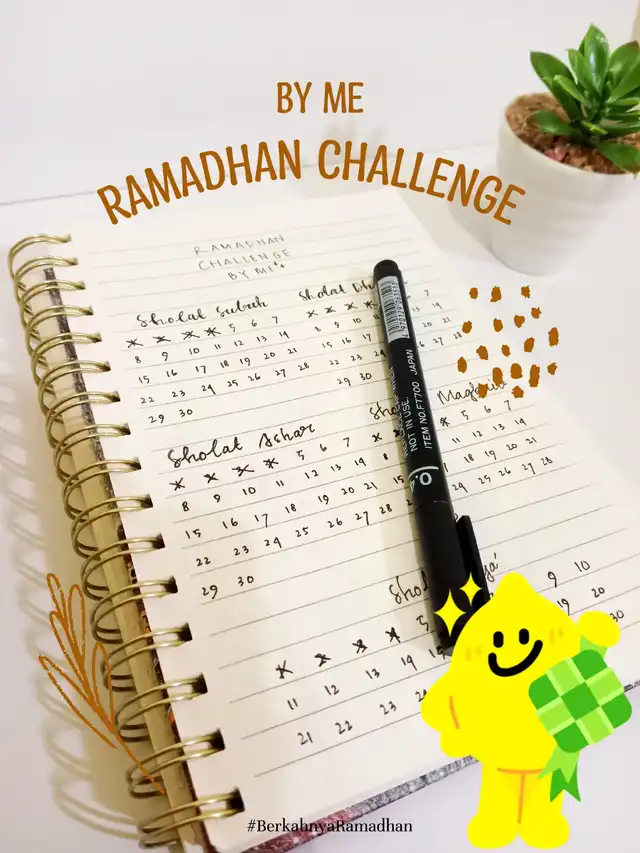 BY ME
RAMADHAN CHALLENGE
RAMADHAN
CHALLENGE
BY ME
Sholat Subuh
x x x x 5 6 7
8 9 10 11 12 13 14
15 16 17 18 19 20 21
22 23 24 25 26 27 28
29 30
Sholat
x x x x 7
8 9 20 21
15 16 27 28
22 23
29 30
Sholat Ashar
x x x x 5 6 7
8 9 10 11 12 13 14
15 16 17 18 19 20 21
22 23 24 25 26 27 28
29 30
x 5 6 7
8 11 12 13 14
15 18 19 20 21
22 24 25 26 27 28
9 10
x x x x 5 19 20
11 12 13 14 30
21 22 23
NOT IN USE.
ITEM NO.FT700 JAPAN
#BerkahnyaRamadhan